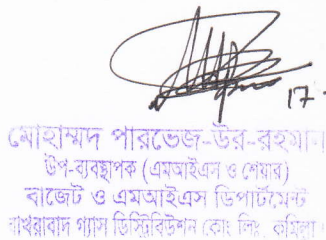 17
মোহাম্মদ পারভেজ-উর-রহমান
উপ-ব্যবস্থাপক (এমআইএস ও শেয়ার)
বাজেট ও এমআইএস ডিপার্টমেন্ট
বাখরাবাদ গ্যাস ডিস্ট্রিবিউশন কোং লিঃ, কুমিল্লা।